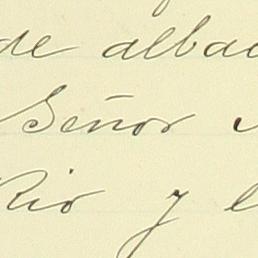 de albac
Señor
Rio y l